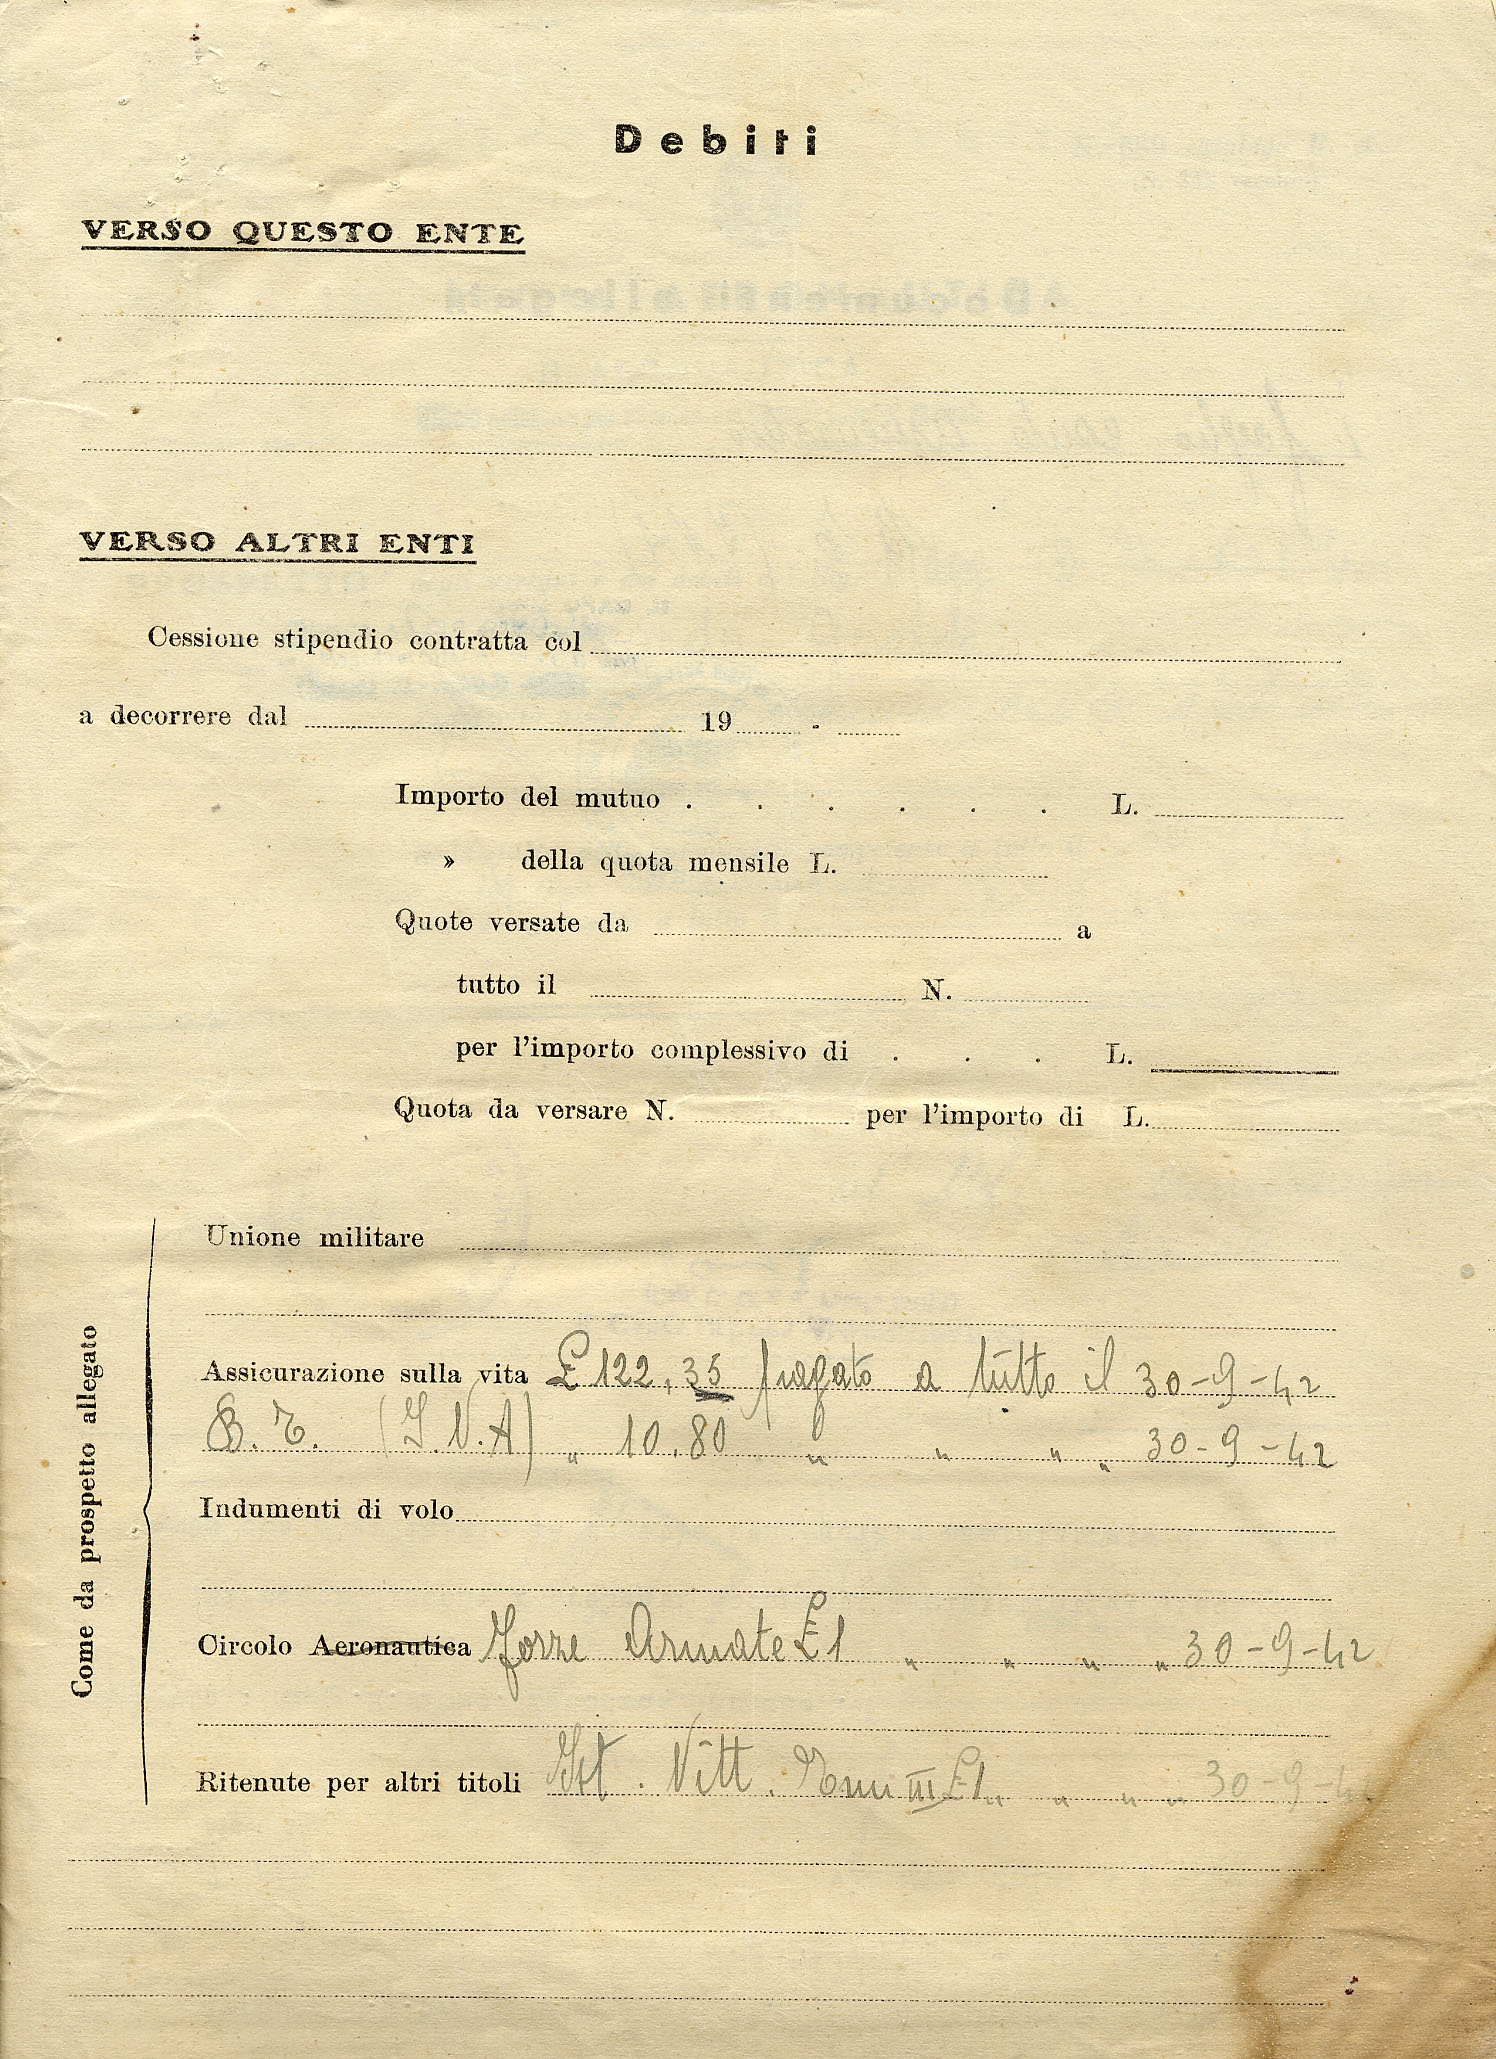 Debiti
VERSO QUESTO ENTE
VERSO ALTRI ENTI
Cessione stipendio contratta col
a decorrere dal 19 -
Importo del mutuo . . . . . . L.
» della quota mensile L.
Quote versate da a
tutto il N.
per l'importo complessivo di . . . L.
Quota da versare N. per l'importo di L.
Come da prospetto allegato
Unione militare
Assicurazione sulla vita £ 122,35 pagato a tutto il 30-9-42
B. T. (I.N.A) " 10.80 " " " " 30-9-42
Indumenti di volo
Circolo Aeronautica Forze Armate £ 1 " " " " 30-9-42
Ritenute per altri titoli Ist. Vitt. Eman III £ 1 " " " " 30-9-42